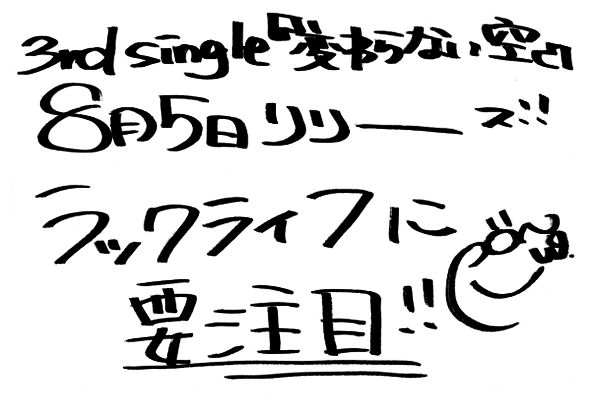 3rd single『変わらない空』
8月5日リリーズ!!
ラックライフに
要注目!!